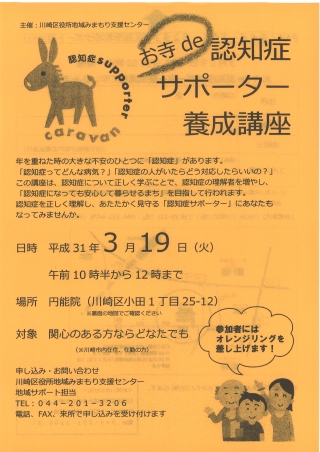 主催：川崎区役所地域みまもり支援センター
認知症supporter
caravan
お寺de認知症
サポーター
養成講座
年を重ねた時の大きな不安のひとつに「認知症」があります。
「認知症ってどんな病気？」「認知症の人がいたらどう対応したらいいの？」
この講座は、認知症について正しく学ぶことで、認知症の理解者を増やし、
「認知症になっても安心して暮らせるまち」を目指して行われます。
認知症を正しく理解し、あたたかく見守る「認知症サポーター」にあなたも
なってみませんか。
日時　平成31年3月19日（火）
午前10時半から12時まで
場所　円能院（川崎区小田1丁目25-12）
※裏面の地図でご確認ください
対象　関心のある方ならどなたでも
（※川崎市内在住、在勤の方）
参加者には
オレンジリングを
差し上げます！
申し込み・お問い合わせ
川崎区役所地域みまもり支援センター
地域サポート担当
TEL：044－201－3206
電話、FAX、来所で申し込みを受け付けます